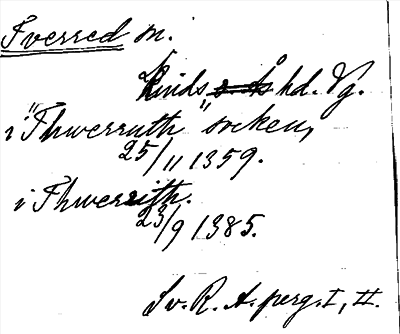 Tverred sn.
Kinds hd. Vg.
i "Thwerruth" socken,
25/11 1359.
i Thwerrith.
23/9 1385.
Sv. R. A. perg. I, II.